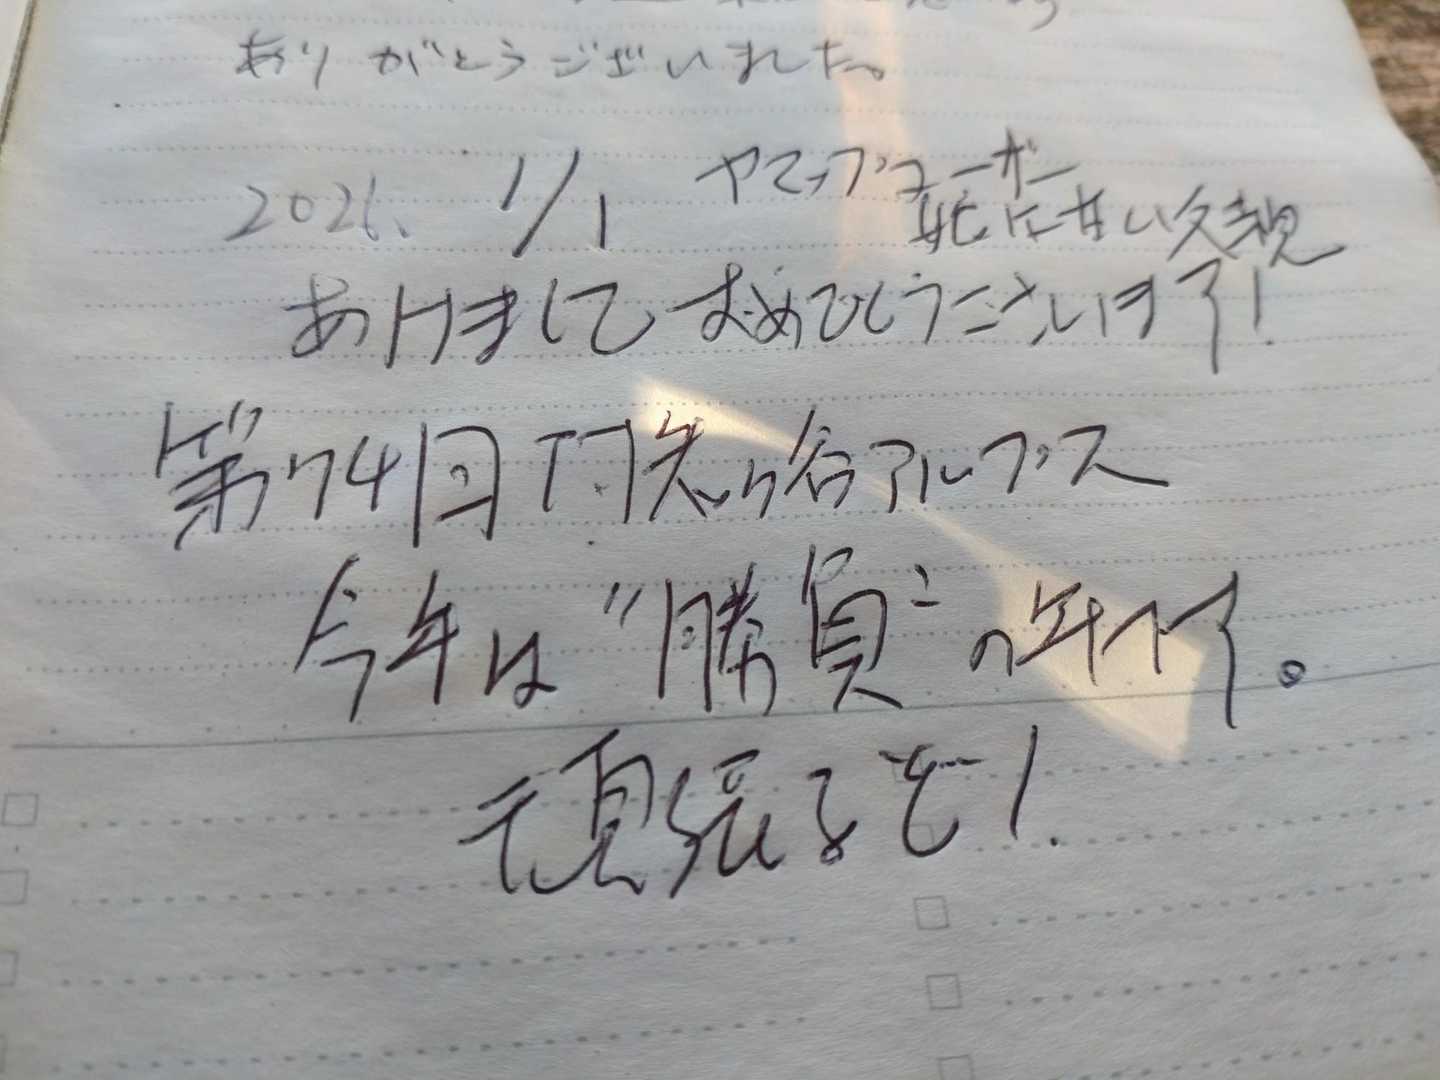 ありがとうございました。
2026. 1/1 ヤマップユーザー
あけましておめでとうございます!
第74回 阿知ヶ谷アルプス
今年は"勝負"の年です。
頑張るぞ!